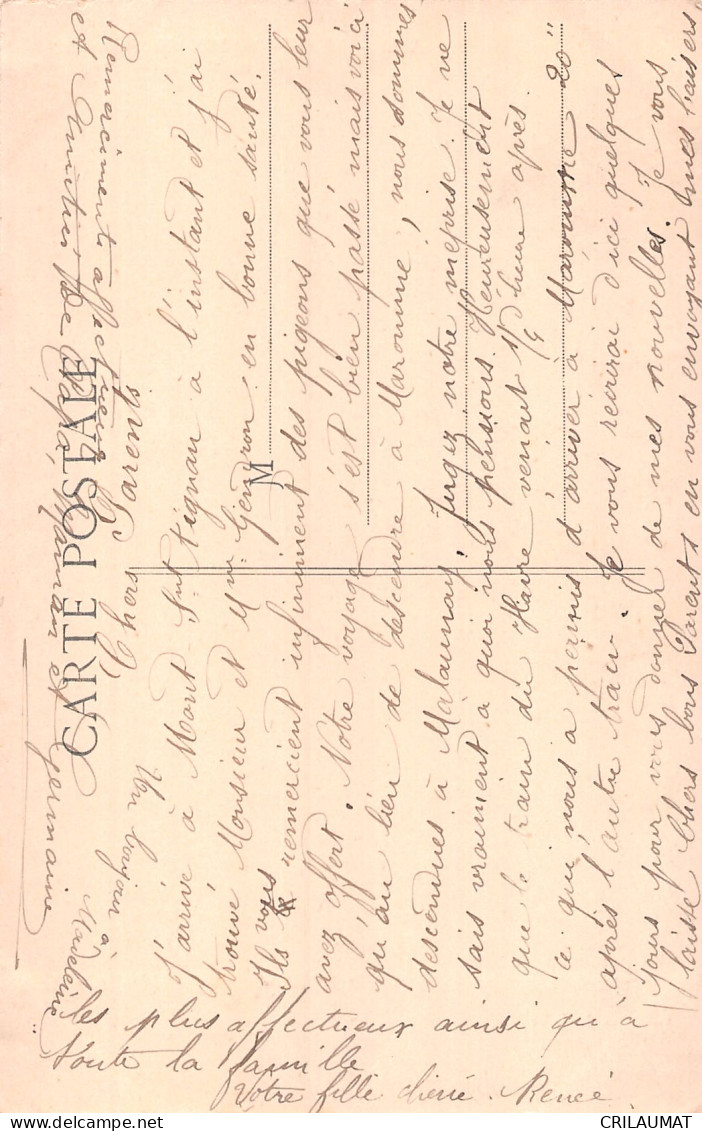 CARTE POSTALE
M
Chers Parents
J'arrive à Mont-St Aignan à l'instant et j'ai
trouvé Monsieur et Mme Gendron en bonne santé.
Ils vous remercient infiniment des pigeons que vous leur
avez offert. Notre voyage s'est bien passé mais voici
qu'au lieu de descendre à Maromme, nous sommes
descendues à Malaunay. Jugez notre méprise. Je ne
sais vraiment à quoi nous pensions. Heureusement
que le train du Havre venait 1/4 d'heure après.
ce qui nous a permis d'arriver à Maromme 20"
après l'autre train. Je vous reécrirai d'ici quelques
jours pour vous donner de mes nouvelles. Je vous
laisse Chers bons Parents en vous envoyant mes baisers
les plus affectueux ainsi qu'à
toute la famille
Votre fille chérie. Renée
Un bonjour à
Madeleine
Remerciments affectueux
et Amitiés de Papa, Maman et Germaine
CRILAUMAT